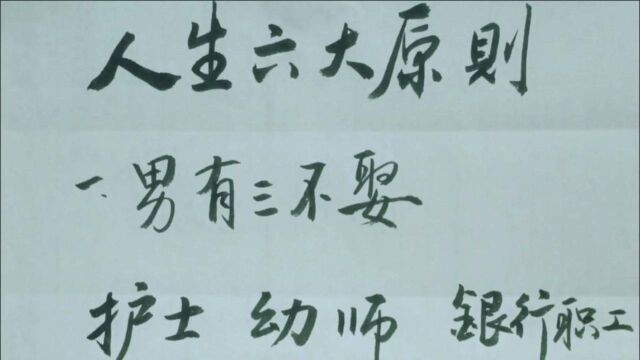 人生六大原則
一.男有三不娶
护士 幼师 銀行职工